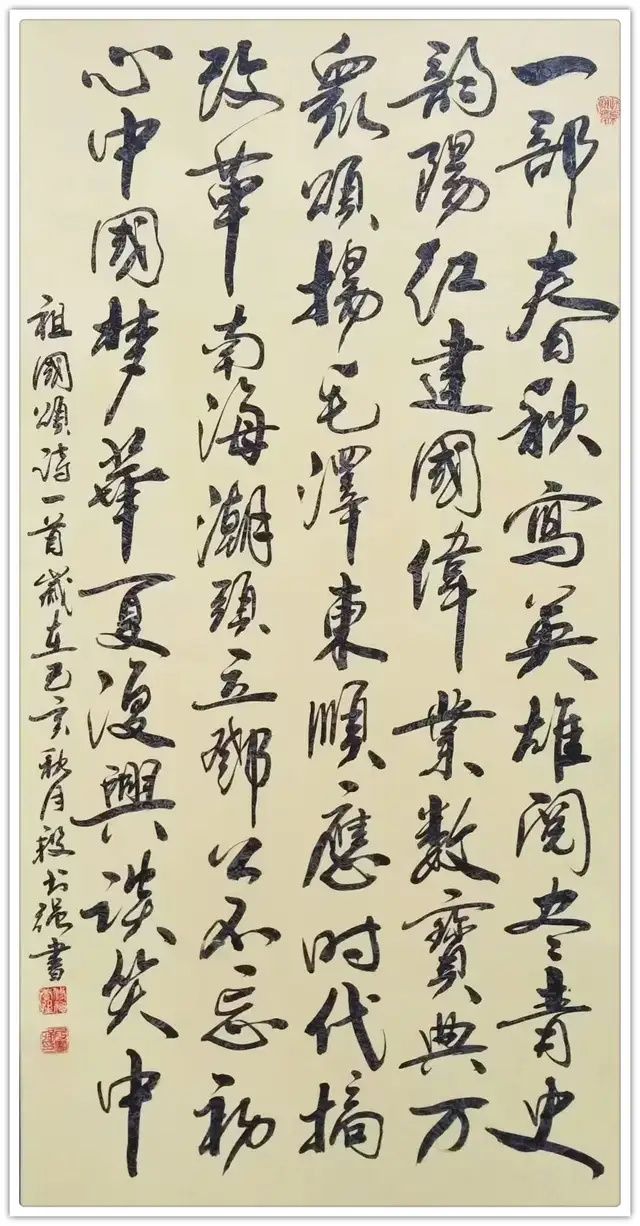 一部春秋寫英雄閱尽青史
韵陽红建國偉業數寶典万
眾頌揚毛澤東順應时代搞
改革南海潮頭立鄧公不忘初
心中國梦華夏復興談笑中
祖國頌诗一首歲在己亥秋月段书强書